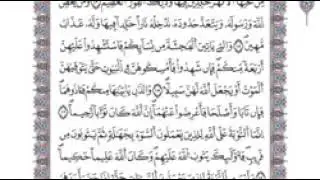 مِن تَحْتِهَا ٱلْأَنْهَٰرُ خَٰلِدِينَ فِيهَا وَذَٰلِكَ ٱلْفَوْزُ ٱلْعَظِيمُ
ٱللَّهَ وَرَسُولَهُۥ وَيَتَعَدَّ حُدُودَهُۥ يُدْخِلْهُ نَارًا خَٰلِدًا فِيهَا وَلَهُۥ عَذَابٌ
مُّهِينٌ وَٱلَّٰتِى يَأْتِينَ ٱلْفَٰحِشَةَ مِن نِّسَآئِكُمْ فَٱسْتَشْهِدُوا۟ عَلَيْهِنَّ
أَرْبَعَةً مِّنكُمْ فَإِن شَهِدُوا۟ فَأَمْسِكُوهُنَّ فِى ٱلْبُيُوتِ حَتَّىٰ يَتَوَفَّىٰهُنَّ
ٱلْمَوْتُ أَوْ يَجْعَلَ ٱللَّهُ لَهُنَّ سَبِيلًا وَٱلَّذَانِ يَأْتِيَٰنِهَا مِنكُمْ فَـَٔاذُوهُمَا
فَإِن تَابَا وَأَصْلَحَا فَأَعْرِضُوا۟ عَنْهُمَآ إِنَّ ٱللَّهَ كَانَ تَوَّابًا رَّحِيمًا
إِنَّمَا ٱلتَّوْبَةُ عَلَى ٱللَّهِ لِلَّذِينَ يَعْمَلُونَ ٱلسُّوٓءَ بِجَهَٰلَةٍ ثُمَّ يَتُوبُونَ مِن
قَرِيبٍ فَأُو۟لَٰٓئِكَ يَتُوبُ ٱللَّهُ عَلَيْهِمْ وَكَانَ ٱللَّهُ عَلِيمًا حَكِيمًا